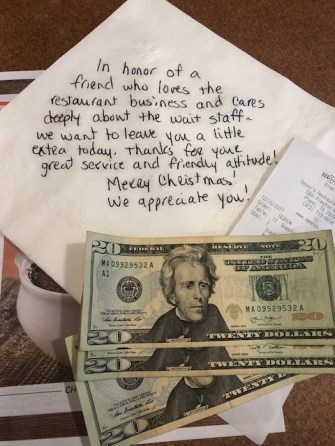 In honor of a
friend who loves the
restaurant business and cares
deeply about the wait staff~
we want to leave you a little
extra today. Thanks for your
great service and friendly attitude!
Merry Christmas!
We appreciate you!
20 FEDERAL RESERVE NOTE 20
THE UNITED STATES
OF AMERICA
MA 09929532 A
A1
MA 09929532 A
20
20 TWENTY DOLLARS
20 TWENTY DOLLARS
20 TWENTY